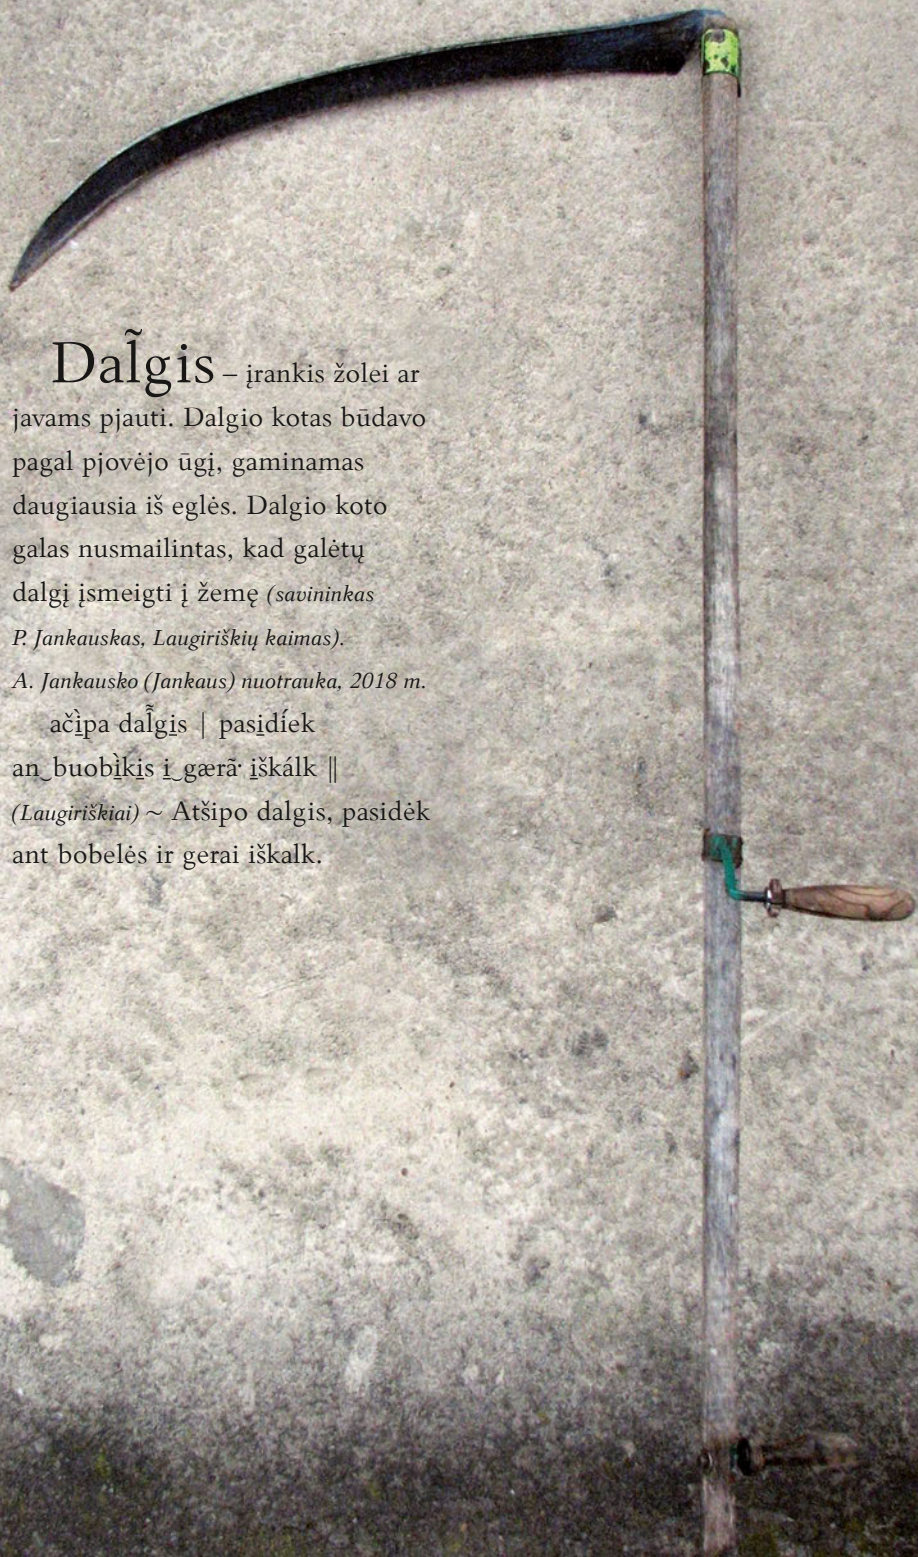 Dal̃gis – įrankis žolei ar
javams pjauti. Dalgio kotas būdavo
pagal pjovėjo ūgį, gaminamas
daugiausia iš eglės. Dalgio koto
galas nusmailintas, kad galėtų
dalgį įsmeigti į žemę (savininkas
P. Jankauskas, Laugiriškių kaimas).
A. Jankausko (Jankaus) nuotrauka, 2018 m.
ačı̱̀pa dal̃̑gi̱s | pasi̱dı́ek
an‿buobı̱̀ki̱s i̱‿gærã· i̱škálk ||
(Laugiriškiai) ~ Atšipo dalgis, pasidėk
ant bobelės ir gerai iškalk.